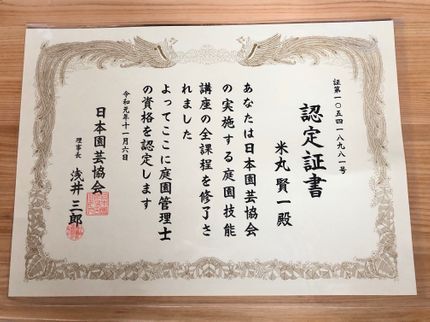 証第一〇五四一八九八一号
認定証書
米丸賢一殿
あなたは日本園芸協会
の実施する庭園技能
講座の全課程を修了さ
れました
よってここに庭園管理士
の資格を認定します
令和元年十一月六日
日本園芸協会
理事長 浅井三郎